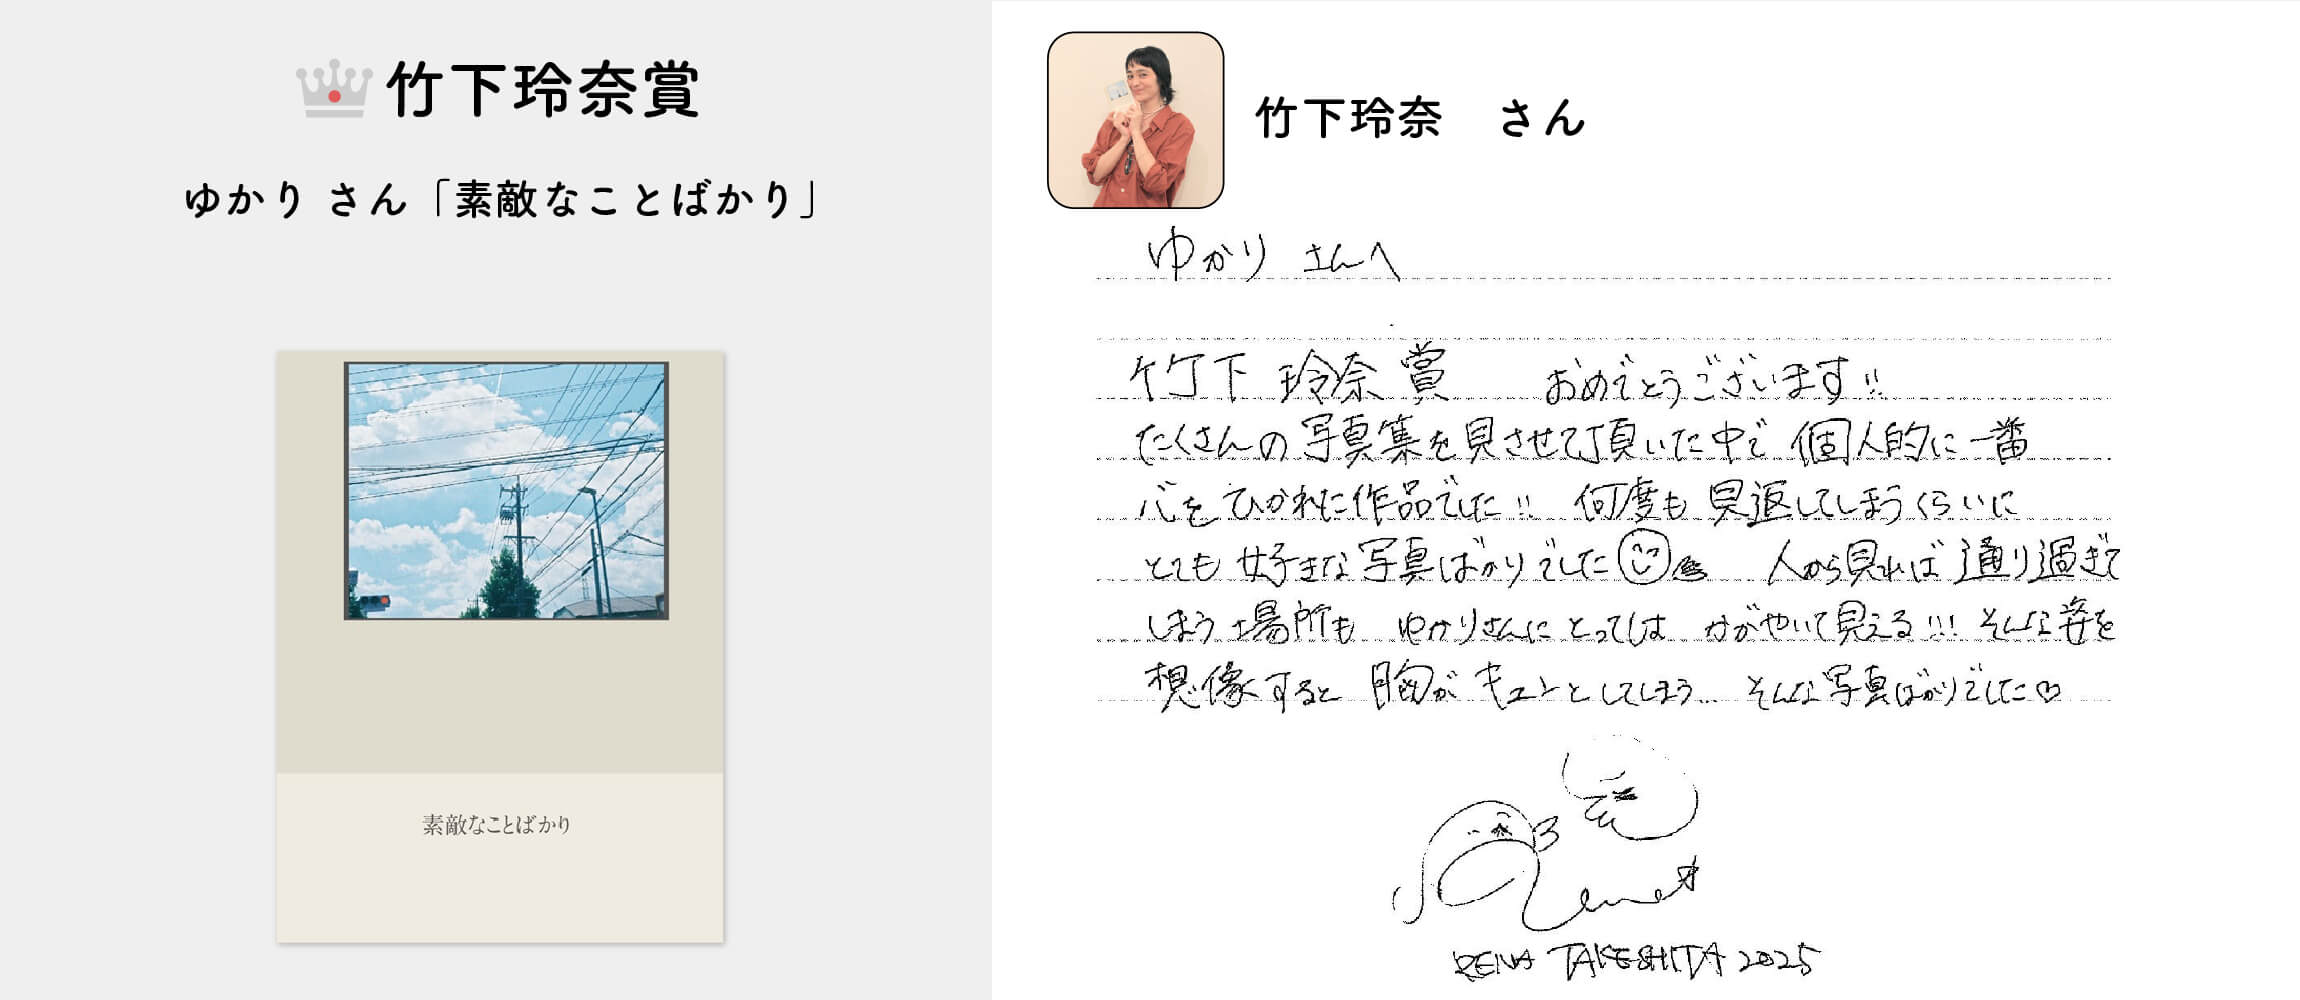 竹下玲奈賞
ゆかり さん「素敵なことばかり」
素敵なことばかり
竹下玲奈　さん
ゆかり さんへ
竹下 玲奈 賞　おめでとうございます!!
たくさんの 写真集を見させて頂いた中で 個人的に一番
心をひかれた作品でした!! 何度も 見返してしまうくらいに
とても 好きな 写真ばかりでした 人から見れば 通り過ぎて
しまう 場所も ゆかりさんにとっては かがやいて見える!!! そんな姿を
想像すると 胸が キュンとしてしまう… そんな写真ばかりでした♡
Rena
RENA TAKESHITA 2025